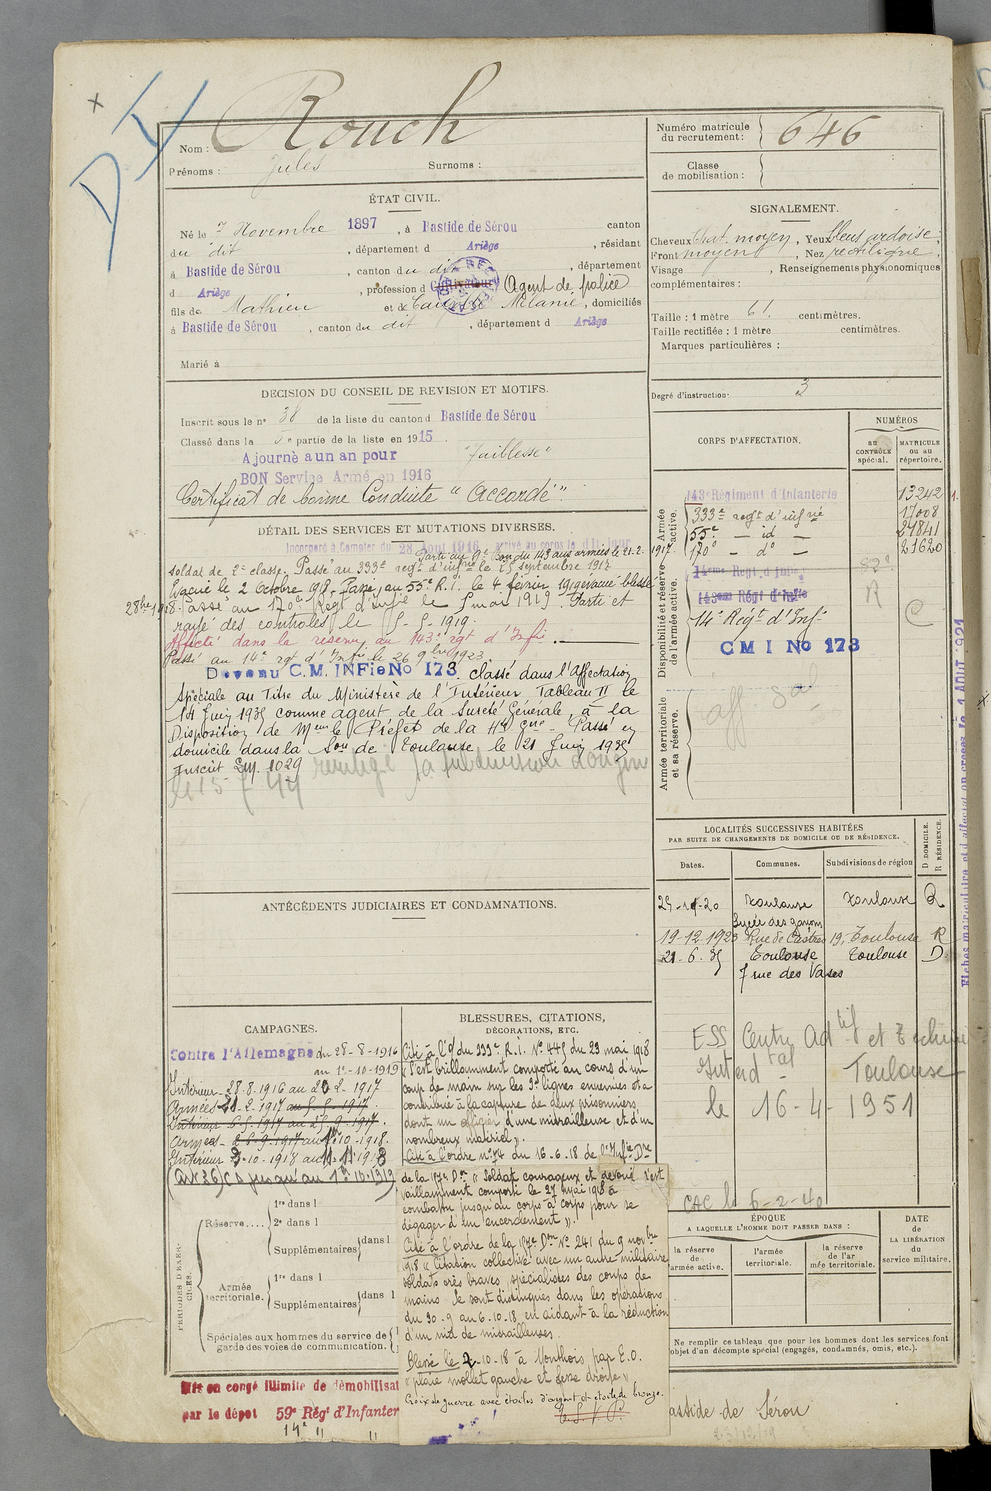 DY
Rouch
Nom :
Prénoms : Jules Surnoms :
Numéro matricule du recrutement : 646
Classe de mobilisation :
ÉTAT CIVIL.
Né le 7 Novembre 1897, à Bastide de Sérou canton
du dit, département d Ariège, résidant
à Bastide de Sérou, canton du dit, département
d Ariège, profession d Cultivateur Agent de police
fils de Mathieu et de Mélanie, domiciliés
à Bastide de Sérou, canton du dit, département d Ariège
Marié à
SIGNALEMENT.
Cheveux Chat. moyen, Yeux bleus ardoise,
Front moyen, Nez rectiligne,
Visage , Renseignements physionomiques
complémentaires :
Taille : 1 mètre 61 centimètres.
Taille rectifiée : 1 mètre centimètres.
Marques particulières :
Degré d'instruction : 3
DECISION DU CONSEIL DE REVISION ET MOTIFS.
Inscrit sous le n° 38 de la liste du canton d Bastide de Sérou
Classé dans la 5e partie de la liste en 1915.
Ajourné a un an pour "faiblesse"
BON Service Armé en 1916
Certificat de bonne Conduite "Accordé".
DÉTAIL DES SERVICES ET MUTATIONS DIVERSES.
Incorporé à Compter du 28 Aout 1916 arrivé au corps le dit jour
Parti au 9e Bon du 143 aux armées le 21.2.1917.
soldat de 2e classe. Passé au 333e regt d'infie le 25 septembre 1917
Evacué le 2 Octobre 1918. Passé au 55e R.I. le 4 février 19 (evacué blessé
28bre 1918. Passé au 170e Régt d'infie le 5 mai 1919. Parti et
rayé des controles le 5-5-1919.
Affecté dans la réserve au 143e rgt d'Infie.
Passé au 14e rgt d'Infie le 26 9bre 1923.
Devenu C.M. INFie No 173. classé dans l'Affectation
Spéciale au Titre du Ministère de l'Intérieur Tableau II le
14 Juin 1935 comme agent de la Sureté Générale à la
Disposition de Meur le Préfet de la Hte Gne - Passé en
domicile dans la Son de Toulouse le 21 Juin 1935
Inscrit 1029
subdivision
CORPS D'AFFECTATION.
NUMÉROS
au CONTRÔLE spécial.
MATRICULE ou au répertoire.
Armée active.
143e Régiment d'Infanterie 13242
333e regt d'infie 17008
55e — id — 21841
170e — do — 21620
Disponibilité et réserve de l'armée active.
14eme Regt. d'Infie
143eme Régt d'Infie R
14e Régt d'Infie
CMI No 173
Armée territoriale et sa réserve.
aff sal
LOCALITÉS SUCCESSIVES HABITÉES
PAR SUITE DE CHANGEMENTS DE DOMICILE OU DE RÉSIDENCE.
Dates. Communes. Subdivisions de région D DOMICILE. R RÉSIDENCE.
Toulouse Toulouse R
Lycée des garçons
19-12-1923 Rue de Castres 19, Toulouse R
21-6-35 Toulouse Toulouse D
7 rue des Vases
ESS Centre Adtif et Techni
Intend tal Toulouse
le 16-4-1951
CAC le 6-2-40
ANTÉCÉDENTS JUDICIAIRES ET CONDAMNATIONS.
CAMPAGNES.
Contre l'Allemagne du 28-8-1916
au 1e-10-1919
Intérieur - 28.8.1916 au 20.2.1917
Armées 21.2.1917 au 5.5.1917.
Intérieur 6.5.1917 au 25.9.1917.
Armées - 26.9.1917 au 10.1918.
Intérieur 3.10.1918 au 11.11.1918
(Art 36) C. jusqu'au 1er 10.1919
PÉRIODES D'EXERCICES.
Réserve.... 1re dans l
2e dans l
Supplémentaires dans l
Armée territoriale. 1re dans l
Supplémentaires dans l
Spéciales aux hommes du service de garde des voies de communication.
BLESSURES, CITATIONS,
DÉCORATIONS, ETC.
Cité à l'O/ du 333e R.I. No 445 du 23 mai 1918
"S'est brillamment comporté au cours d'un
coup de main sur les 3e lignes ennemies et a
contribué à la capture de deux prisonniers
dont un officier d'une mitrailleuse et d'un
nombreux matériel".
Cité à l'ordre No 74 du 16.6.18 de l'Infie Dre
de la 157e Don "Soldat courageux et dévoué s'est
vaillamment comporté le 27 mai 1918 à
combattu jusqu'au corps à corps pour se
dégager d'un encerclement".
Cité à l'ordre de la 157e Don No 241 du 9 novbre
1918 "Citation collective avec un autre militaire
soldats très braves, spécialistes des coups de
mains. Se sont distingués dans les opérations
du 30.9 au 6.10.18 en aidant à la réduction
d'un nid de mitrailleuses.
Blessé le 2-10-18 à Monthois par E.O.
"plaie mollet gauche et fesse droite"
Croix de guerre avec étoiles d'argent et étoile de bronze.
ÉPOQUE
A LAQUELLE L'HOMME DOIT PASSER DANS :
la réserve de l'armée active.
l'armée territoriale.
la réserve de l'armée territoriale.
DATE de LA LIBÉRATION du service militaire.
Ne remplir ce tableau que pour les hommes dont les services font
objet d'un décompte spécial (engagés, condamnés, omis, etc.).
Mis en congé illimité de démobilisat
par le dépot 59e Régt d'Infanter
14e " "
astide de Sérou